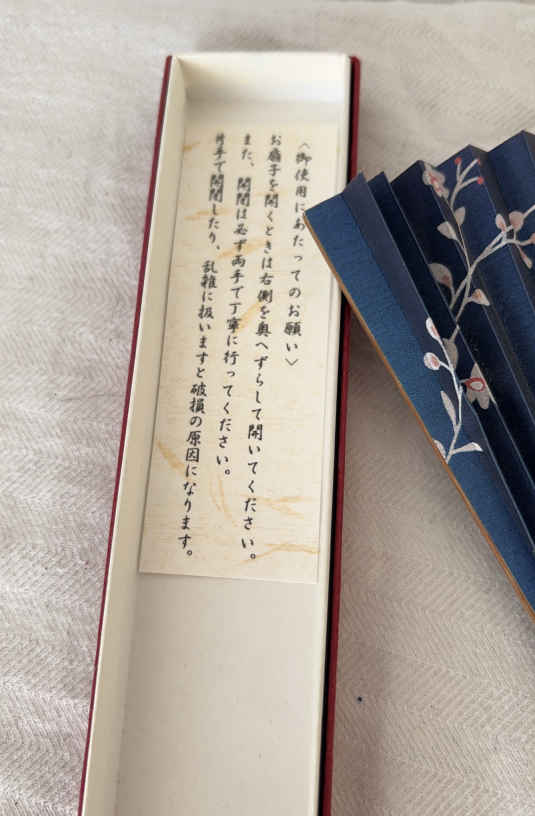 〈御使用にあたってのお願い〉
お扇子を開くときは右側を奥へずらして開いてください。
また、開閉は必ず両手で丁寧に行ってください。
片手で開閉したり、乱雑に扱いますと破損の原因になります。